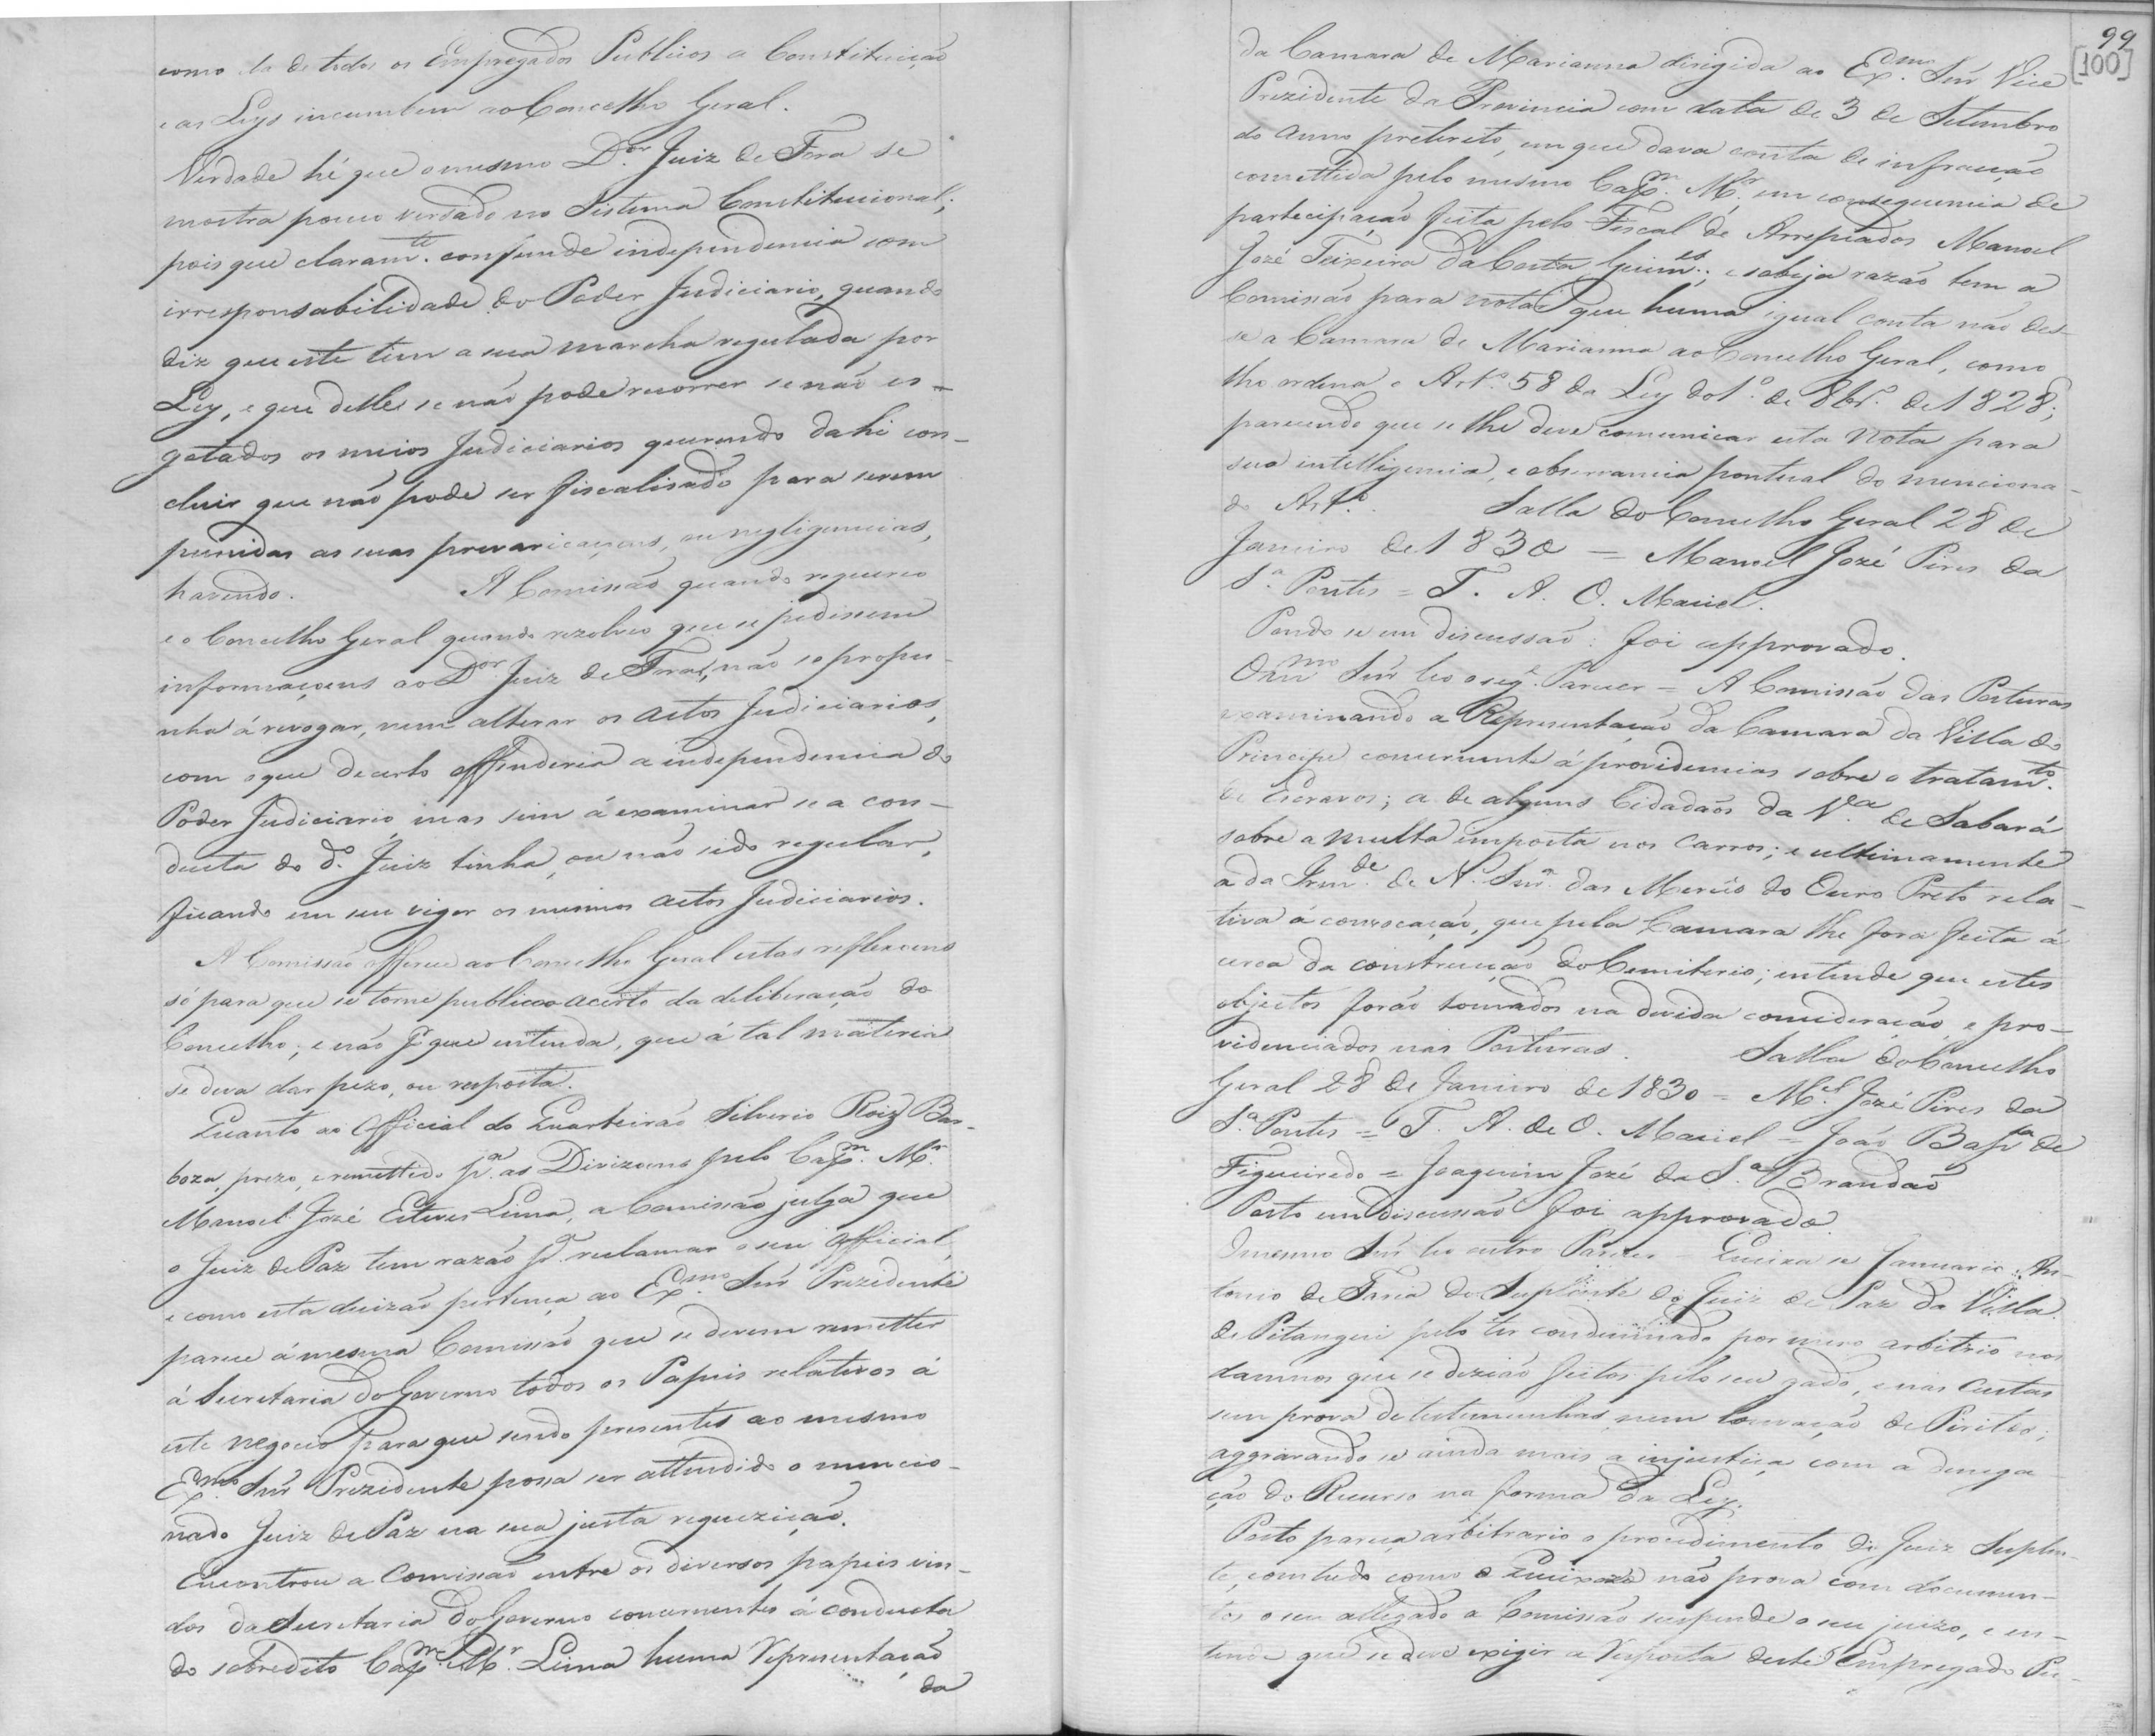 como la de todos os Empregados Publicos a Constituição
e as Leys incumbem ao Concelho Geral.
Verdade hé que o mesmo D.or Juiz de Fora se
mostra pouco versado no Sistema Constitucional;
pois que claram.te confunde independencia com
irresponsabilidade do Poder Judiciario, quando
diz que este tem a sua marcha regulada por
Ley, e que delles se não pode recorrer se não es-
gotados os meios Judiciarios querendo dahi con-
cluir que não pode ser fiscalisado para serem
punidas as suas prevaricaçoens, ou negligencias,
havendo. A Comissão quando requereo
e o Concelho Geral quando rezolveo que se pedissem
informaçoens ao D.or Juiz de Fora, não se propu-
nha á revogar, nem alterar os actos Judiciarios,
com o que de certo offenderia a independencia do
Poder Judiciario, mas sim á examinar se a con-
ducta do d.o Juiz tinha, ou não sido regular,
ficando em seu vigor os mesmos actos Judiciarios.
A Comissão offerece ao Concelho Geral estas reflexoens
só para que se torne publico o acerto da deliberação do
Concelho; e não p.r que entenda, que á tal materia
se deva dar pezo, ou resposta.
Quanto ao Official do Quarteirão Silverio Roiz Bar-
boza, prezo, e remettido p.a as Divizoens pelo Cap.m M.r
Manoel José Esteves Lima, a Comissão julga que
o Juiz de Paz tem razão p.a reclamar o seu Official,
e como esta decizão pertença ao Ex.mo Snr Prezidente
parece á mesma Comissão que se devem remetter
á Secretaria do Governo todos os Papeis relativos á
este negocio para que sendo presentes ao mesmo
Ex.mo Snr Prezidente possa ser attendido o mencio-
nado Juiz de Paz na sua justa requezição.
Encontrou a Comissão entre os diversos papeis vin-
dos da Secretaria do Governo concernentes á conducta
do sobredito Cap.m M.r Lima huma Representação
da
99
[100]
da Camara de Marianna dirigida ao Ex.mo Snr Vice
Prezidente da Provincia com data de 3 de Setembro
do anno preterito, em que dava conta de infracção
comettida pelo mesmo Cap.m M.r em consequencia de
participação feita pelo Fiscal de Arrepiados Manoel
José Teixeira da Costa Guim.es; e sobeja razão tem a
Comissão para notar que huma igual conta não des-
se a Camara de Marianna ao Concelho Geral, como
lhe ordena o Art.o 58 da Ley do 1.o de 8br.o de 1828;
parecendo que se lhe deve comunicar esta Nota para
sua intelligencia, e observancia pontual do menciona-
do Art.o. Salla do Concelho Geral 28 de
Janeiro de 1830 = Manoel José Pires da
S.a Pontes = T. A. O. Maciel.
Pondo se em discussão: foi approvado.
O m.mo Snr leo o seg.e Parecer = A Comissão das Posturas
examinando a Representação da Camara da Villa do
Principe concernente á providencias sobre o tratam.to
de Escravos; a de alguns Cidadãos da V.a de Sabará
sobre a multa imposta nos carros; e ultimamente
a da Irm.de de N. Snr.a das Mercês do Ouro Preto rela-
tiva á convocação, que pela Camara lhe fora feita á
cerca da construcção do Cemiterio; entende que estes
objectos forão tomados na devida consideração, e pro-
videnciados nas Posturas. Salla do Concelho
Geral 28 de Janeiro de 1830 = M.el José Pires da
S.a Pontes = T. A. de O. Maciel = João Bap.ta de
Figueiredo = Joaquim José da S.a Brandão
Posto em discussão foi approvado.
O mesmo Snr leo outro Parecer = Queixa se Januario An-
tonio de Faria do Suplente do Juiz de Paz da Villa
de Pitangui pelo ter condemnado por mero arbitrio nos
damnos que se dezião feitos pelo seu gado, e nas custas,
sem prova de testemunhas, nem louvação de Peritos;
aggravando se ainda mais a injustiça com a denega
ção do Recurso na forma da Ley.
Posto pareça arbitrario o procedimento do Juiz Suplen-
te, comtudo como o Queixoso não prova com documen-
tos o seu allegado a Comissão suspende o seu juizo, e en-
tende que se deve exigir a Resposta deste Empregado Pu-